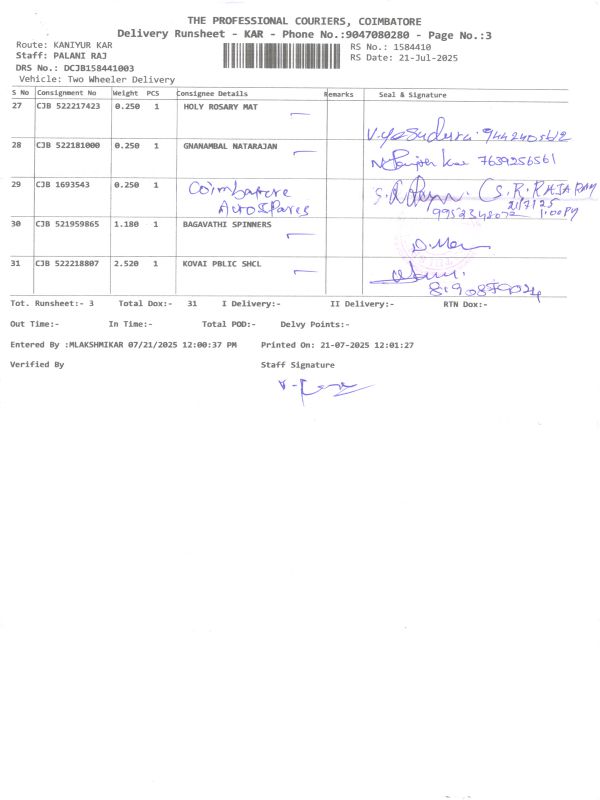 THE PROFESSIONAL COURIERS, COIMBATORE
Delivery Runsheet - KAR - Phone No.:9047080280 - Page No.:3
Route: KANIYUR KAR RS No.: 1584410
Staff: PALANI RAJ RS Date: 21-Jul-2025
DRS No.: DCJB158441003
Vehicle: Two Wheeler Delivery
S No Consignment No Weight PCS Consignee Details Remarks Seal & Signature
27 CJB 522217423 0.250 1 HOLY ROSARY MAT
28 CJB 522181000 0.250 1 GNANAMBAL NATARAJAN
7639256561
29 CJB 1693543 0.250 1 Coimbatore
Autospares
21/7/25
1:00 PM
30 CJB 521959865 1.180 1 BAGAVATHI SPINNERS
31 CJB 522218807 2.520 1 KOVAI PBLIC SHCL
Tot. Runsheet:- 3 Total Dox:- 31 I Delivery:- II Delivery:- RTN Dox:-
Out Time:- In Time:- Total POD:- Delvy Points:-
Entered By :MLAKSHMIKAR 07/21/2025 12:00:37 PM Printed On: 21-07-2025 12:01:27
Verified By Staff Signature